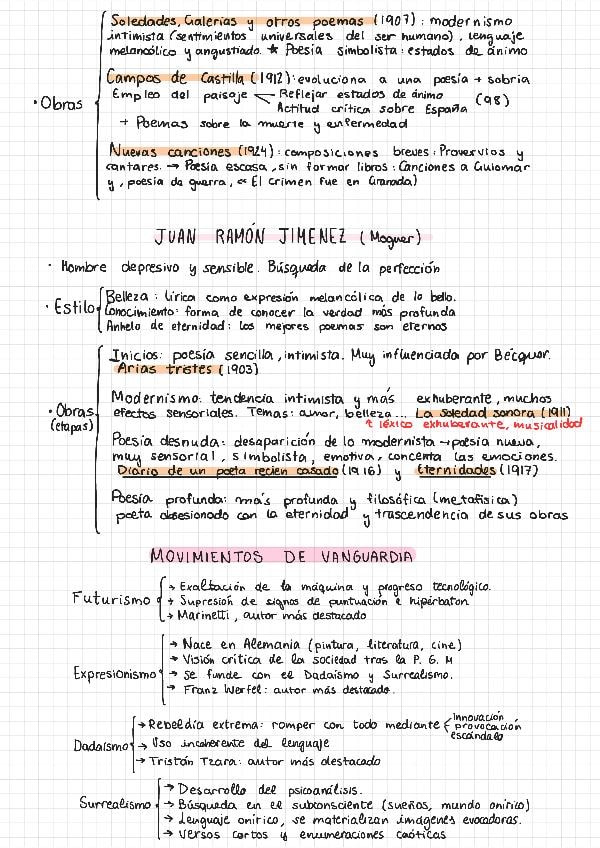 Soledades, Galerías y otros poemas (1907): modernismo
intimista (sentimientos universales del ser humano), lenguaje
melancólico y angustiado. ★ Poesía simbolista: estados de ánimo
· Obras
Campos de Castilla (1912): evoluciona a una poesía + sobria
Empleo del paisaje
Reflejar estados de ánimo
Actitud crítica sobre España
(98)
+ Poemas sobre la muerte y enfermedad
Nuevas canciones (1924): composiciones breves: Proverbios y
cantares. → Poesía escasa, sin formar libros: Canciones a Guiomar
y, poesía de guerra, « El crimen fue en Granada)
JUAN RAMÓN JIMENEZ (Moguer)
· Hombre depresivo y sensible. Búsqueda de la perfección
· Estilo
Belleza: lírica como expresión melancólica de lo bello.
Conocimiento: forma de conocer la verdad más profunda
Anhelo de eternidad: los mejores poemas son eternos
· Obras
(etapas)
Inicios: poesía sencilla, intimista. Muy influenciada por Bécquer.
Arias tristes (1903)
Modernismo: tendencia intimista y más exhuberante, muchos
efectos sensoriales. Temas: amor, belleza... La soledad sonora (1911)
↑ léxico exhuberante, musicalidad
Poesía desnuda: desaparición de lo modernista → poesía nueva,
muy sensorial, simbolista, emotiva, concenta las emociones.
Diario de un poeta recien casado (1916) y Eternidades (1917)
Poesía profunda: más profunda y filosófica (metafísica)
poeta obsesionado con la eternidad y trascendencia de sus obras
MOVIMIENTOS DE VANGUARDIA
Futurismo
→ Exaltación de la máquina y progreso tecnológico.
→ Supresión de signos de puntuación e hipérbaton
→ Marinetti, autor más destacado
Expresionismo
→ Nace en Alemania (pintura, literatura, cine)
→ Visión crítica de la sociedad tras la P. G. M
→ Se funde con el Dadaísmo y Surrealismo.
→ Franz Werfel: autor más destacado.
Dadaísmo
→ Rebeldía extrema: romper con todo mediante
Innovación
provocación
escándalo
→ Uso incoherente del lenguaje
→ Tristán Tzara: autor más destacado
Surrealismo
→ Desarrollo del psicoanálisis.
→ Búsqueda en el subconsciente (sueños, mundo onírico)
→ Lenguaje onírico, se materializan imágenes evocadoras.
→ Versos cortos y enumeraciones caóticas